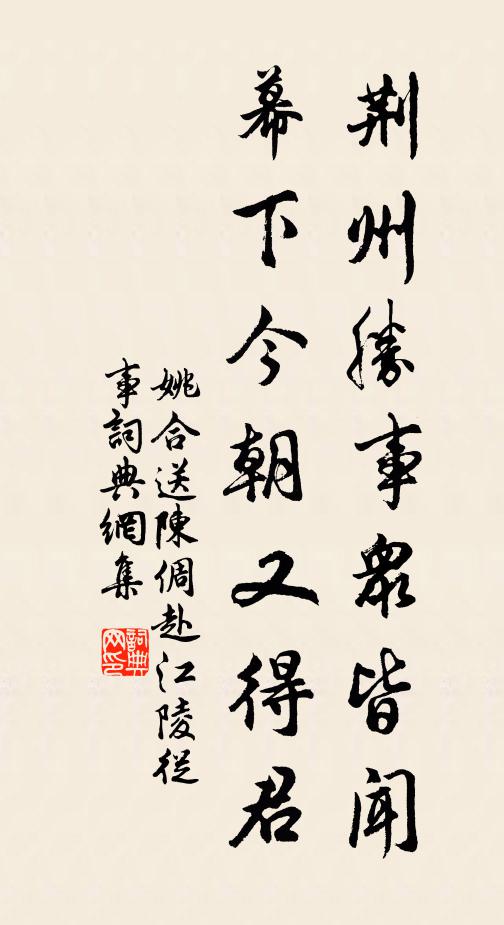 荆州勝事衆皆聞
幕下今朝又得君
姚合送陳倜赴江陵從
事詞典網集
詞典网印